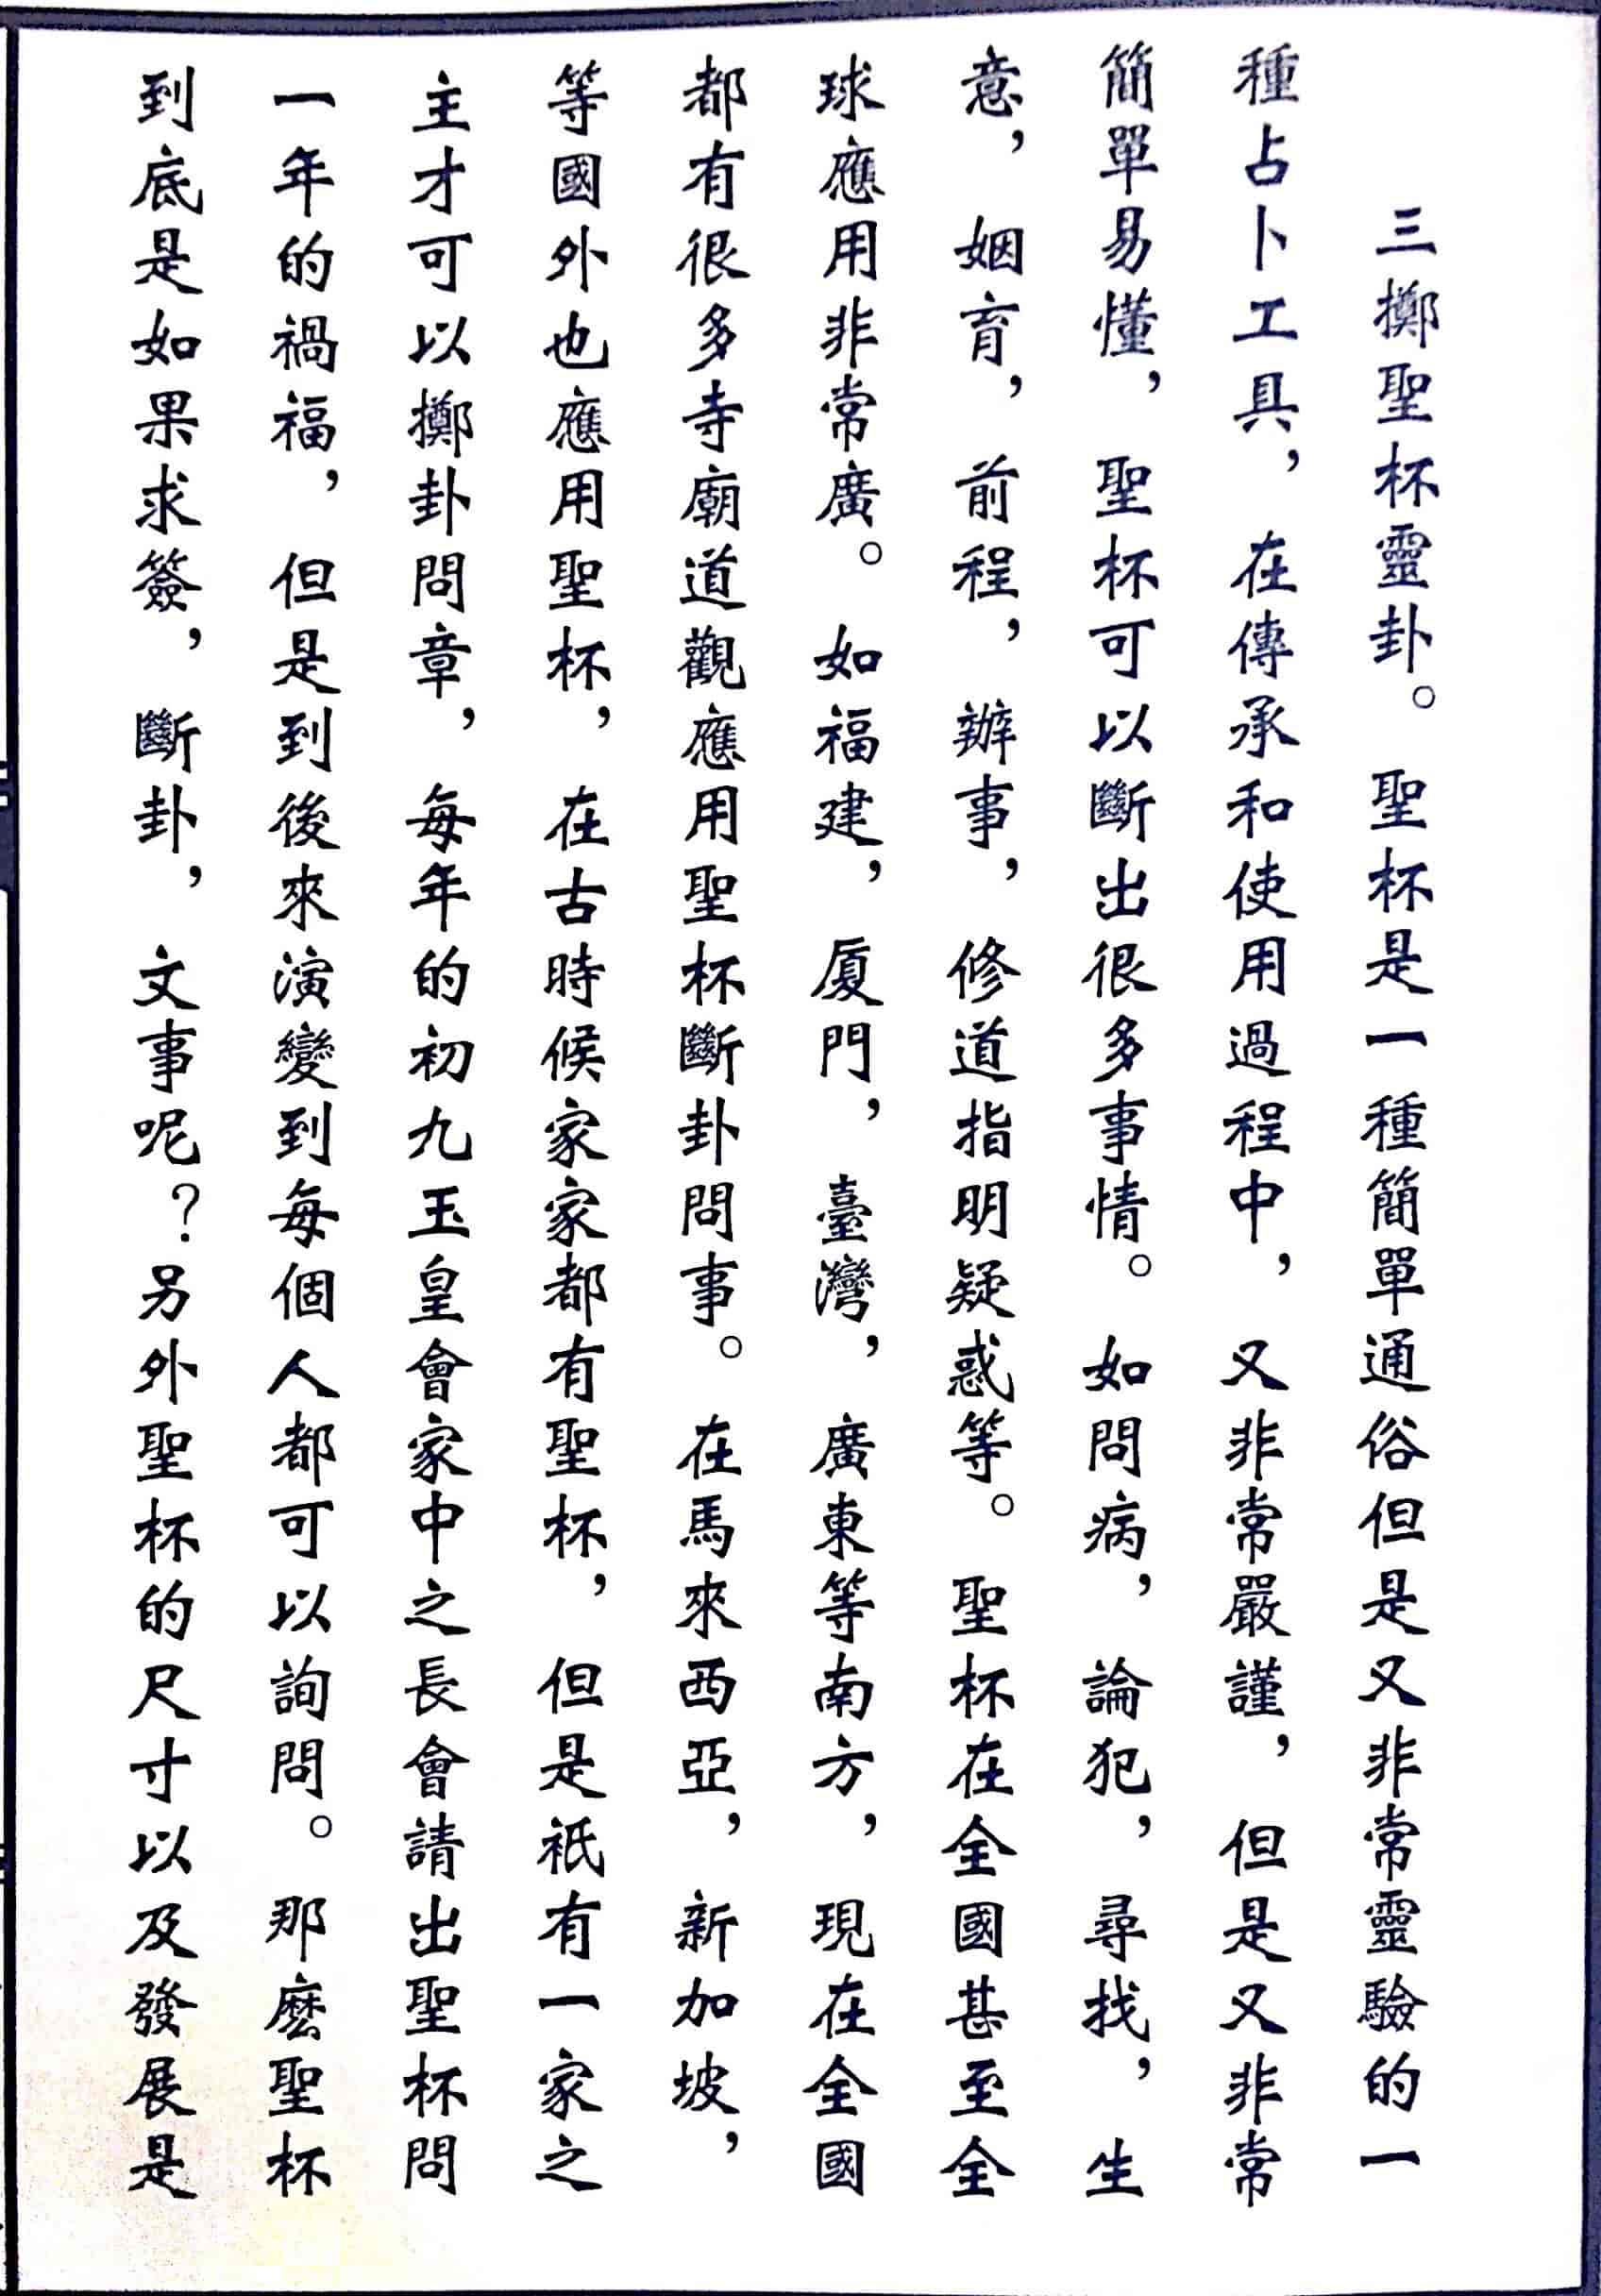 三擲聖杯靈卦。聖杯是一種簡單通俗但是又非常靈驗的一
種占卜工具，在傳承和使用過程中，又非常嚴謹，但是又非常
簡單易懂，聖杯可以斷出很多事情。如問病，論犯，尋找，生
意，姻育，前程，辦事，修道指明疑惑等。聖杯在全國甚至全
球應用非常廣。如福建，厦門，臺灣，廣東等南方，現在全國
都有很多寺廟道觀應用聖杯斷卦問事。在馬來西亞，新加坡，
等國外也應用聖杯，在古時候家家都有聖杯，但是祇有一家之
主才可以擲卦問章，每年的初九玉皇會家中之長會請出聖杯問
一年的禍福，但是到後來演變到每個人都可以詢問。那麽聖杯
到底是如果求簽，斷卦，文事呢？另外聖杯的尺寸以及發展是